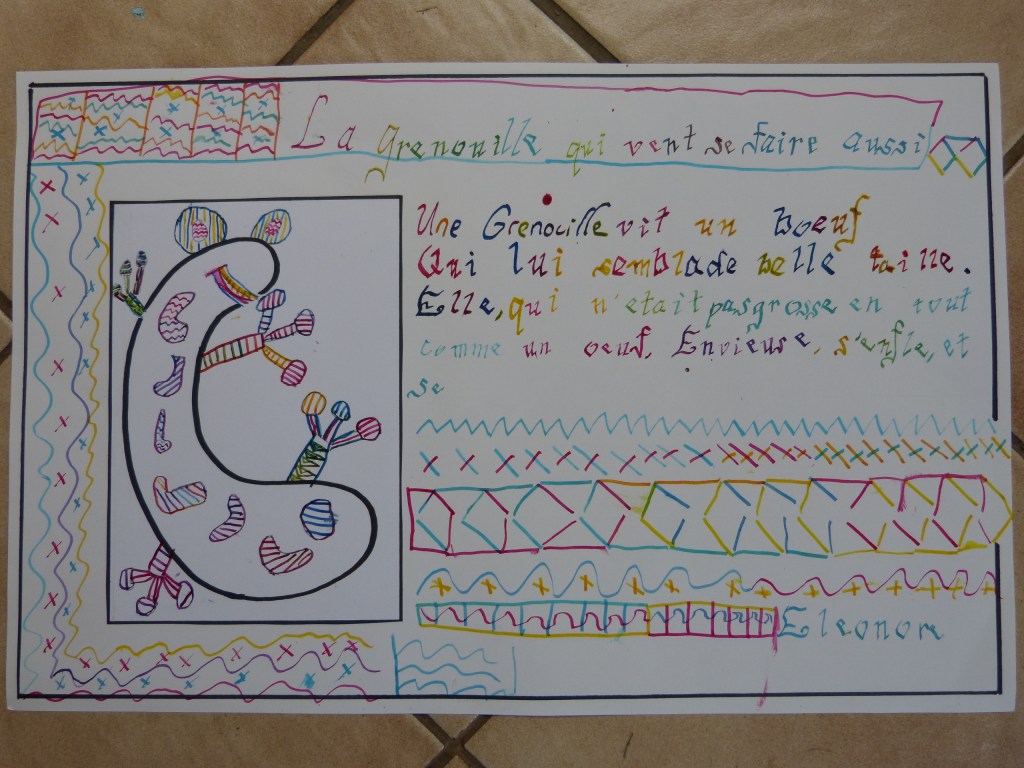 La grenouille qui vent se faire aussi
Une Grenouille vit un boeuf
Qui lui semblade belle taille.
Elle, qui n'etait pas grosse en tout
comme un oeuf, Envieuse, s'enfle, et
se
Eleonore